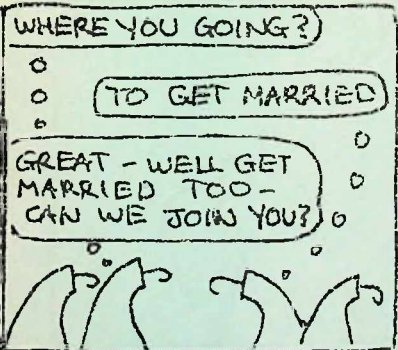 WHERE YOU GOING?
TO GET MARRIED
GREAT - WELL GET
MARRIED TOO -
CAN WE JOIN YOU?